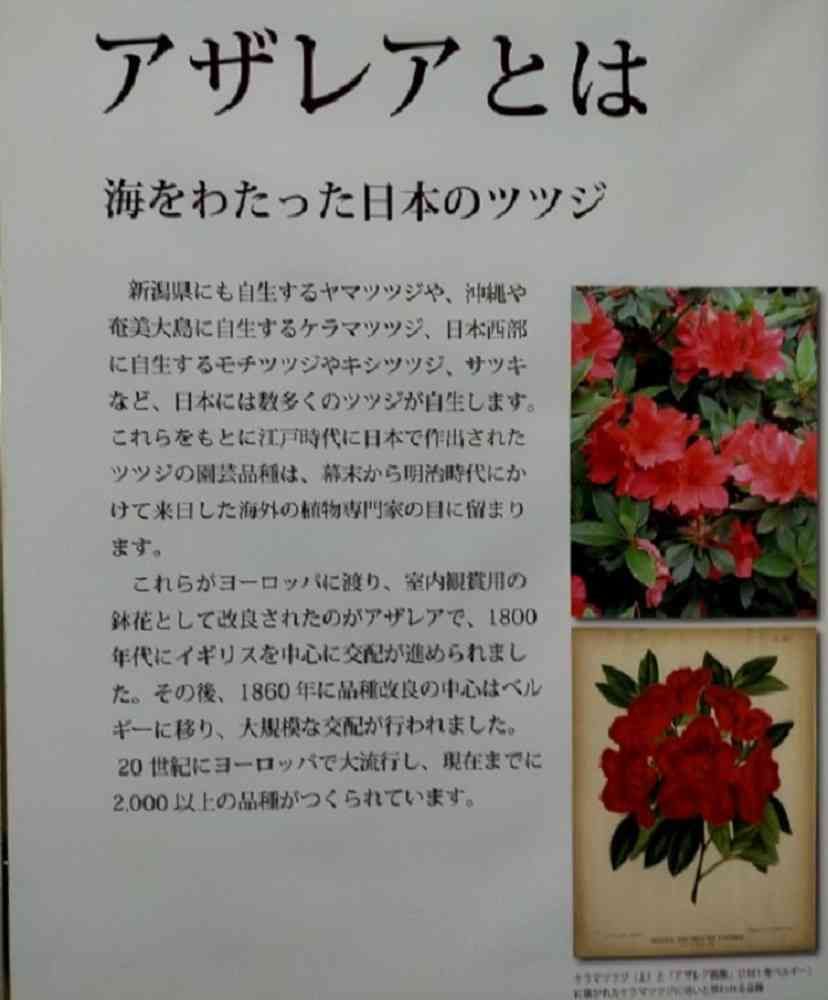 アザレアとは
海をわたった日本のツツジ
新潟県にも自生するヤマツツジや、沖縄や
奄美大島に自生するケラマツツジ、日本西部
に自生するモチツツジやキシツツジ、サツキ
など、日本には数多くのツツジが自生します。
これらをもとに江戸時代に日本で作出された
ツツジの園芸品種は、幕末から明治時代にか
けて来日した海外の植物専門家の目に留まり
ます。
これらがヨーロッパに渡り、室内観賞用の
鉢花として改良されたのがアザレアで、1800
年代にイギリスを中心に交配が進められまし
た。その後、1860年に品種改良の中心はベル
ギーに移り、大規模な交配が行われました。
20世紀にヨーロッパで大流行し、現在までに
2,000以上の品種がつくられています。
ケラマツツジ（上）と「アザレア
に描かれたケラマツツジに近いと思われる品種